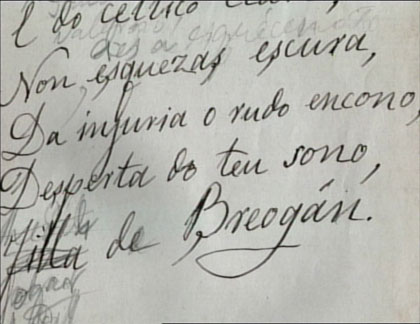 E do celtico
Non esquezas escura,
Da injuria o rudo encono,
Desperta do teu sono,
de Breogán.